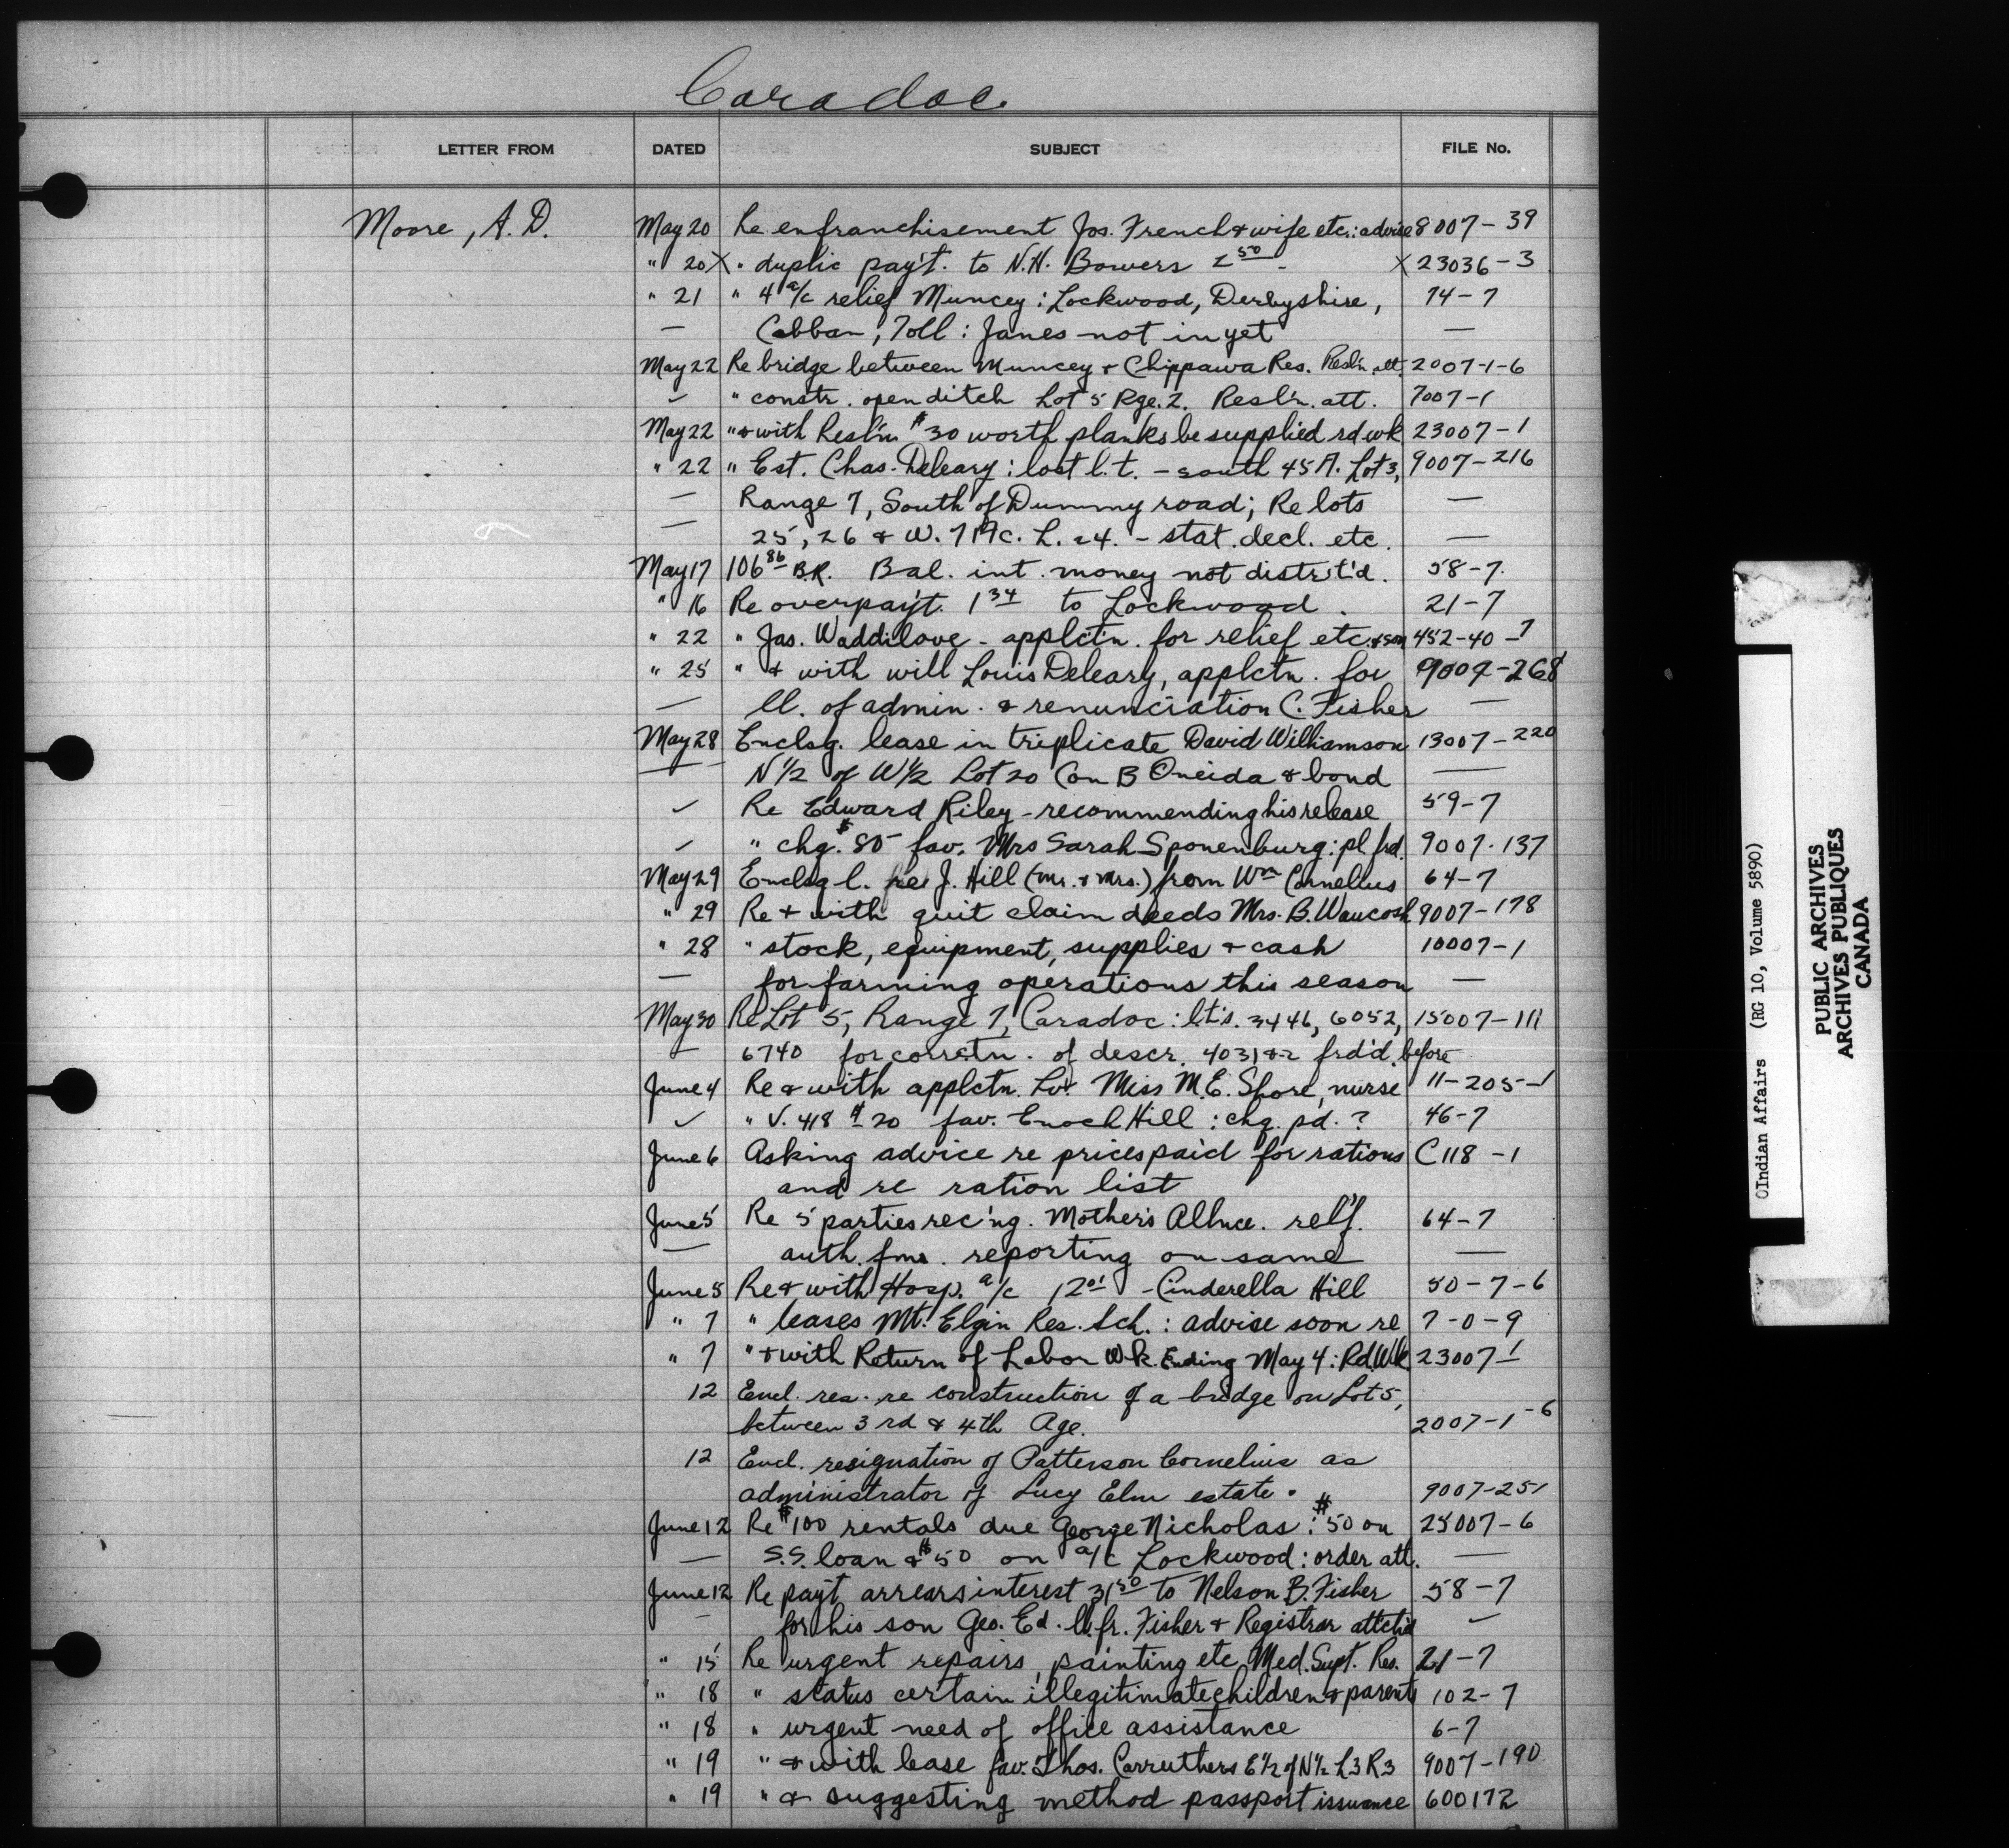 Caradoc
LETTER FROM DATED SUBJECT FILE No.
Moore, A. D. May 20 Re enfranchisement Jos. French & wife etc: advise 8007-39
" 20 X " duplic pay't. to N.H. Bowers 2 50 - X 23036-3
" 21 " 4 a/c relief Muncey: Lockwood, Derbyshire, 74-7
— Cobban, Toll: Janes not in yet —
May 22 Re bridge between Muncey & Chippawa Res. Resl'n att. 2007-1-6
✓ " constr. open ditch Lot 5 Rge. 2. Resl'n. att. 7007-1
May 22 " & with Resl'n $30 worth planks be supplied rd wk 23007-1
" 22 " Est. Chas. Deleary: lost l.t. - south 45 A. Lot 3, 9007-216
— Range 7, South of Dummy road; Re lots —
— 25, 26 & W. 7 Ac. L. 24. - stat. decl. etc. —
May 17 106 86 B.R. Bal. int. money not distrit'd. 58-7.
" 16 Re overpay't. 1 34 to Lockwood. 21-7
" 22 " Jas. Waddilove - applct'n. for relief etc. & son 452-40-7
" 25 " & with will Louis Deleary, applctn. for 9007-268
— ll. of admin. & renunciation C. Fisher —
May 28 Enclsg. lease in triplicate David Williamson 13007-220
— N 1/2 of W 1/2 Lot 20 Con B Oneida & bond —
✓ Re Edward Riley - recommending his release 59-7
✓ " chq. $80 fav. Mrs Sarah Sponenburg: pl. frd. 9007-137
May 29 Enclsg l. re J. Hill (Mr. & Mrs.) from Wm Cornelius 64-7
" 29 Re & with quit claim deeds Mrs. B. Waucosh 9007-178
" 28 " stock, equipment, supplies & cash 10007-1
— for farming operations this season —
May 30 Re Lot 5, Range 7, Caradoc: lt's. 3446, 6052, 15007-111
— 6740 for corretn. of descr. 4031 & 2 frd'd before
June 4 Re & with applctn. Miss M.E. Shore, nurse 11-205-1
✓ " V. 418 $20 fav. Enoch Hill: chq. pd.? 46-7
June 6 Asking advice re prices paid for rations C 118-1
and re ration list
June 5 Re 5 parties rec'ng. Mother's Allnce. rel'f. 64-7
— auth. fms. reporting on same —
June 5 Re & with Hosp. a/c 12 01 - Cinderella Hill 50-7-6
" 7 " leases Mt. Elgin Res. Sch.: advise soon re 7-0-9
" 7 " & with Return of Labor Wk. Ending May 4: Rd. Wk 23007-1
12 Encl. res. re construction of a bridge on Lot 5,
between 3rd & 4th Rge. 2007-1-6
12 Encl. resignation of Patterson Cornelius as
administrator of Lucy Elm estate. 9007-251
June 12 Re $100 rentals due George Nicholas: $50 on 25007-6
— S.S. loan & $50 on a/c Lockwood: order att. —
June 12 Re pay't arrears interest 31 50 to Nelson B. Fisher 58-7
— for his son Geo. Ed. ll. fr. Fisher & Registrar attch'd —
" 15 Re urgent repairs, painting etc Med. Supt. Res. 21-7
" 18 " status certain illegitimate children & parents 102-7
" 18 " urgent need of office assistance 6-7
" 19 " & with lease fav. Thos. Carruthers E 1/2 of N 1/2 L3 R3 9007-190
" 19 " & suggesting method passport issuance 600172
©Indian Affairs (RG 10, Volume 5890)
PUBLIC ARCHIVES
ARCHIVES PUBLIQUES
CANADA